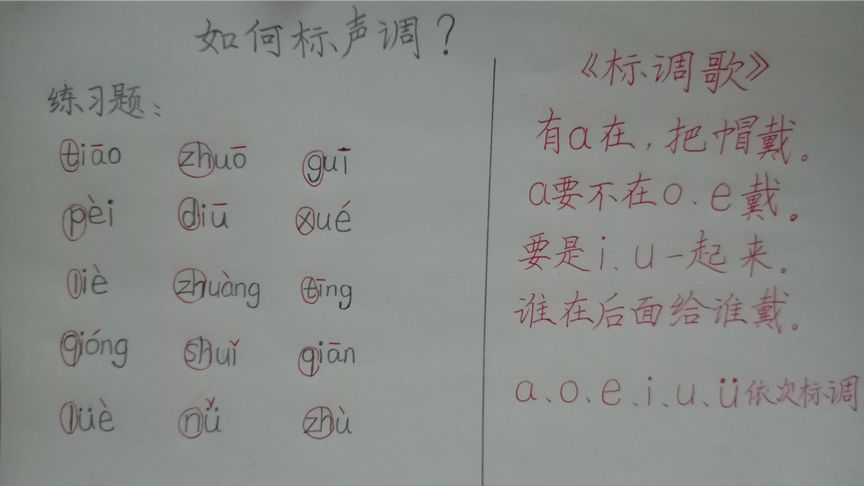 如何标声调？
练习题：
tiāo zhuō guī
pèi diū xué
liè zhuàng tīng
qióng shuǐ qiān
lüè nǚ zhù
《标调歌》
有a在，把帽戴。
a要不在o、e戴。
要是i、u一起来。
谁在后面给谁戴。
a、o、e、i、u、ü依次标调